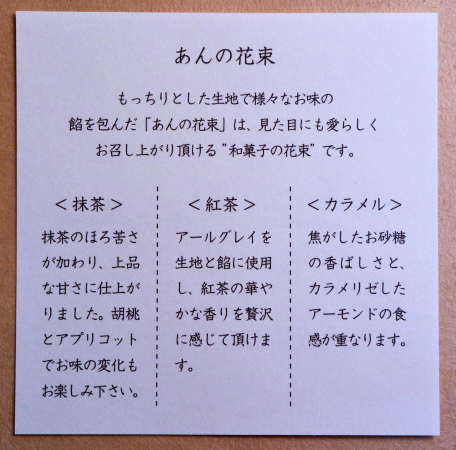 あんの花束
もっちりとした生地で様々なお味の
餡を包んだ「あんの花束」は、見た目にも愛らしく
お召し上がり頂ける“和菓子の花束”です。
＜抹茶＞
抹茶のほろ苦さ
が加わり、上品
な甘さに仕上が
りました。胡桃
とアプリコット
でお味の変化も
お楽しみ下さい。
＜紅茶＞
アールグレイを
生地と餡に使用
し、紅茶の華や
かな香りを贅沢
に感じて頂けま
す。
＜カラメル＞
焦がしたお砂糖
の香ばしさと、
カラメリゼした
アーモンドの食
感が重なります。